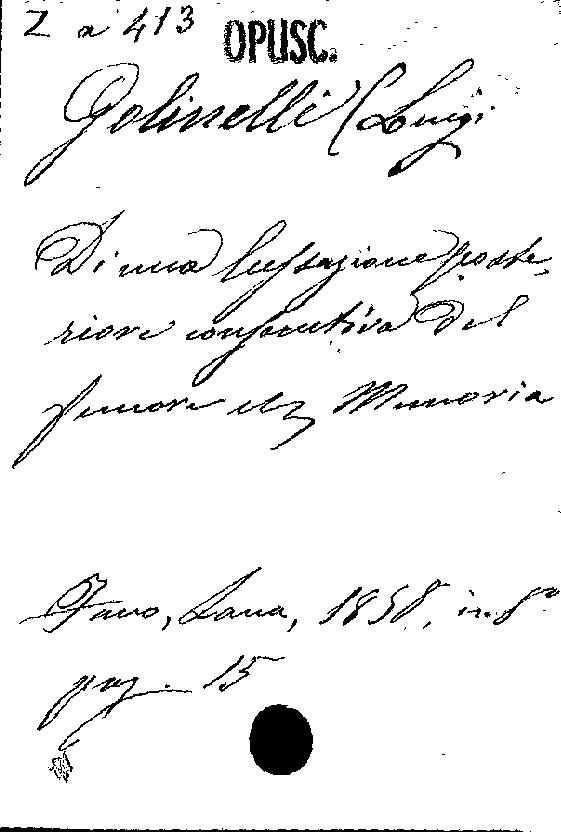 Z a 413
OPUSC.
Golinelli (Luigi
Di una lussazione poste-
riore consecutiva del
femore etc Memoria
Fano, Lana, 1858, in 8°
pag. 15